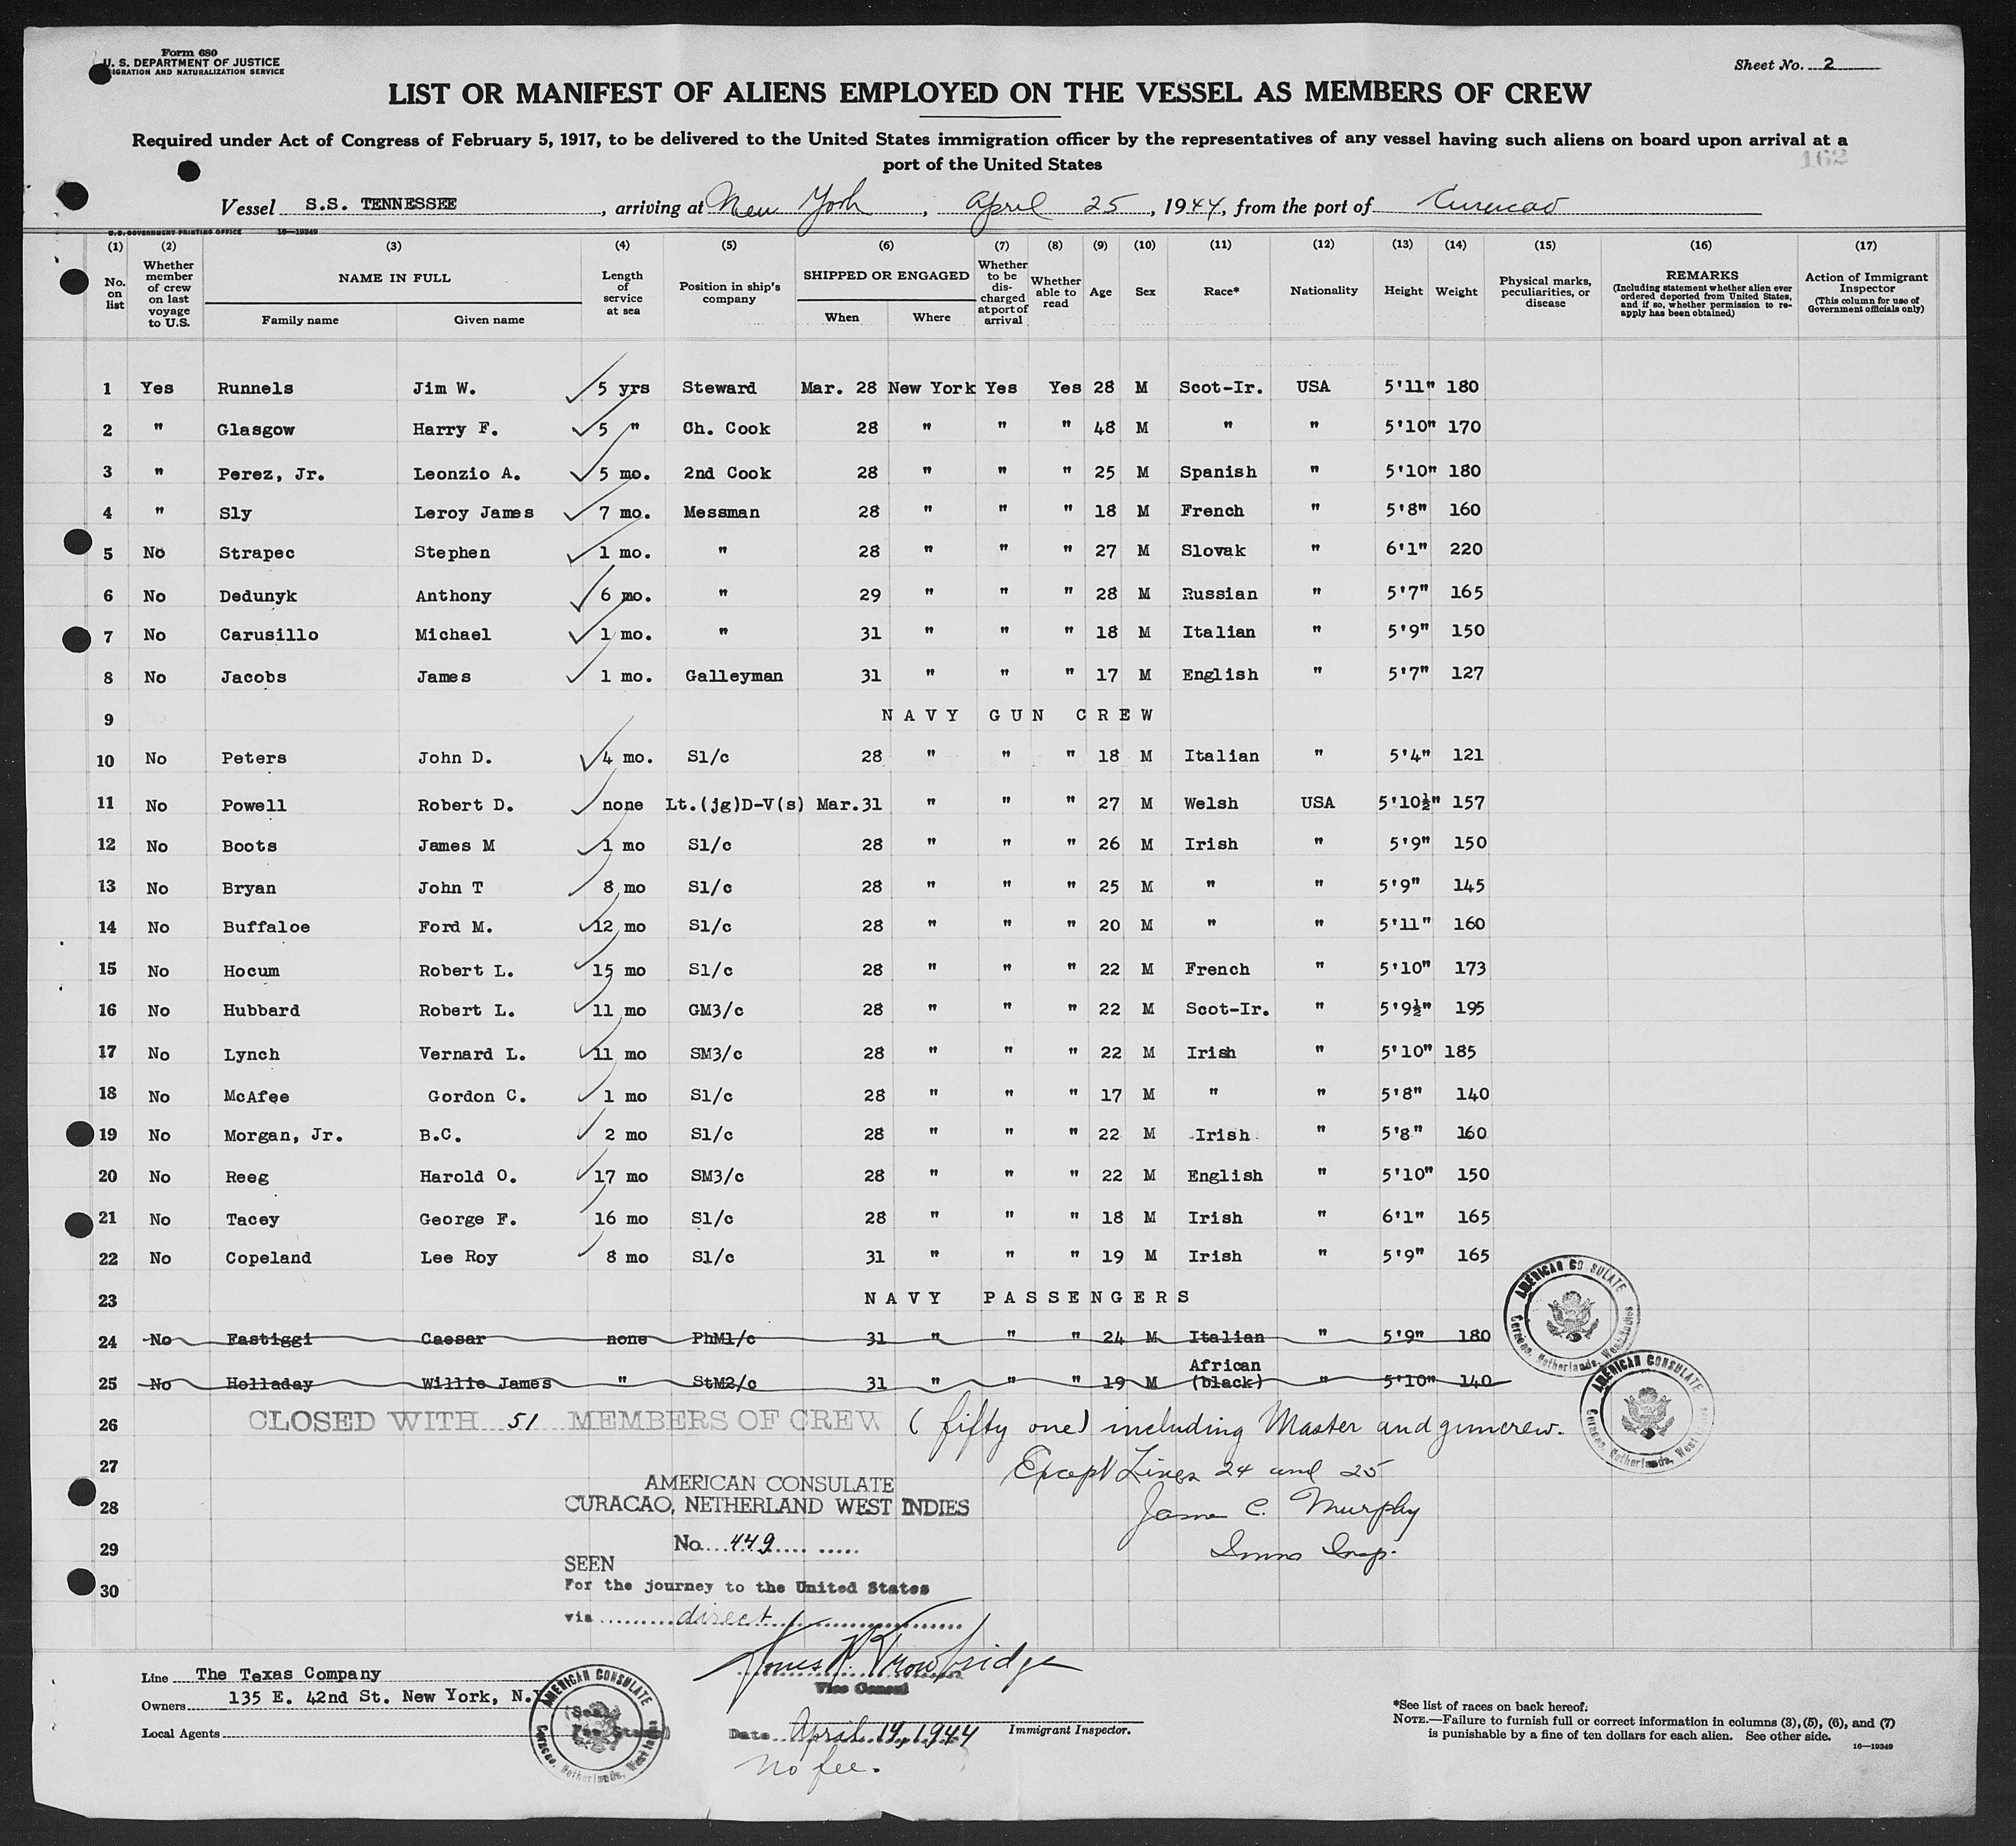 Form 680
U. S. DEPARTMENT OF JUSTICE
IGRATION AND NATURALIZATION SERVICE
Sheet No. 2
LIST OR MANIFEST OF ALIENS EMPLOYED ON THE VESSEL AS MEMBERS OF CREW
Required under Act of Congress of February 5, 1917, to be delivered to the United States immigration officer by the representatives of any vessel having such aliens on board upon arrival at a
port of the United States
162
Vessel S.S. TENNESSEE, arriving at New York, April 25, 1944, from the port of Curacao
U.S. GOVERNMENT PRINTING OFFICE 16—19349
(1) (2) (3) (4) (5) (6) (7) (8) (9) (10) (11) (12) (13) (14) (15) (16) (17)
No. on list
Whether member of crew on last voyage to U.S.
NAME IN FULL
Family name Given name
Length of service at sea
Position in ship's company
SHIPPED OR ENGAGED
When Where
Whether to be discharged at port of arrival
Whether able to read
Age
Sex
Race*
Nationality
Height
Weight
Physical marks, peculiarities, or disease
REMARKS
(Including statement whether alien ever ordered deported from United States, and if so, whether permission to re-apply has been obtained)
Action of Immigrant Inspector
(This column for use of Government officials only)
1 Yes Runnels Jim W. 5 yrs Steward Mar. 28 New York Yes Yes 28 M Scot-Ir. USA 5'11" 180
2 " Glasgow Harry F. 5 " Ch. Cook 28 " " " 48 M " " 5'10" 170
3 " Perez, Jr. Leonzio A. 5 mo. 2nd Cook 28 " " " 25 M Spanish " 5'10" 180
4 " Sly Leroy James 7 mo. Messman 28 " " " 18 M French " 5'8" 160
5 No Strapec Stephen 1 mo. " 28 " " " 27 M Slovak " 6'1" 220
6 No Dedunyk Anthony 6 mo. " 29 " " " 28 M Russian " 5'7" 165
7 No Carusillo Michael 1 mo. " 31 " " " 18 M Italian " 5'9" 150
8 No Jacobs James 1 mo. Galleyman 31 " " " 17 M English " 5'7" 127
9 NAVY GUN CREW
10 No Peters John D. 4 mo. S1/c 28 " " " 18 M Italian " 5'4" 121
11 No Powell Robert D. none Lt.(jg)D-V(s) Mar.31 " " " 27 M Welsh USA 5'10½" 157
12 No Boots James M 1 mo S1/c 28 " " " 26 M Irish " 5'9" 150
13 No Bryan John T 8 mo S1/c 28 " " " 25 M " " 5'9" 145
14 No Buffaloe Ford M. 12 mo S1/c 28 " " " 20 M " " 5'11" 160
15 No Hocum Robert L. 15 mo S1/c 28 " " " 22 M French " 5'10" 173
16 No Hubbard Robert L. 11 mo GM3/c 28 " " " 22 M Scot-Ir. " 5'9½" 195
17 No Lynch Vernard L. 11 mo SM3/c 28 " " " 22 M Irish " 5'10" 185
18 No McAfee Gordon C. 1 mo S1/c 28 " " " 17 M " " 5'8" 140
19 No Morgan, Jr. B.C. 2 mo S1/c 28 " " " 22 M Irish " 5'8" 160
20 No Reeg Harold O. 17 mo SM3/c 28 " " " 22 M English " 5'10" 150
21 No Tacey George F. 16 mo S1/c 28 " " " 18 M Irish " 6'1" 165
22 No Copeland Lee Roy 8 mo S1/c 31 " " " 19 M Irish " 5'9" 165
23 NAVY PASSENGERS
24 No Fastiggi Caesar none PhM1/c 31 " " " 24 M Italian " 5'9" 180
25 No Holladay Willie James " StM2/c 31 " " " 19 M African (black) " 5'10" 140
AMERICAN CO SULATE
Curacao, Netherlands, West Indies
AMERICAN CONSULATE
Curacao, Netherlands, West Indies
26 CLOSED WITH 51 MEMBERS OF CREW (fifty one) including Master and guncrew.
27 Except Lines 24 and 25
AMERICAN CONSULATE
28 CURACAO, NETHERLAND WEST INDIES
James C. Murphy
29 No. 449
Imm Insp.
SEEN
30 For the journey to the United States
via direct
James H. Trowbridge
Vice Consul
Line The Texas Company
Owners 135 E. 42nd St. New York, N.Y
Local Agents
AMERICAN CONSULATE
Curacao, Netherlands, West Indies
(Seal
Fee Stamp)
Date April 19, 1944
Immigrant Inspector.
No fee.
*See list of races on back hereof.
NOTE.—Failure to furnish full or correct information in columns (3), (5), (6), and (7)
is punishable by a fine of ten dollars for each alien. See other side.
16—19349